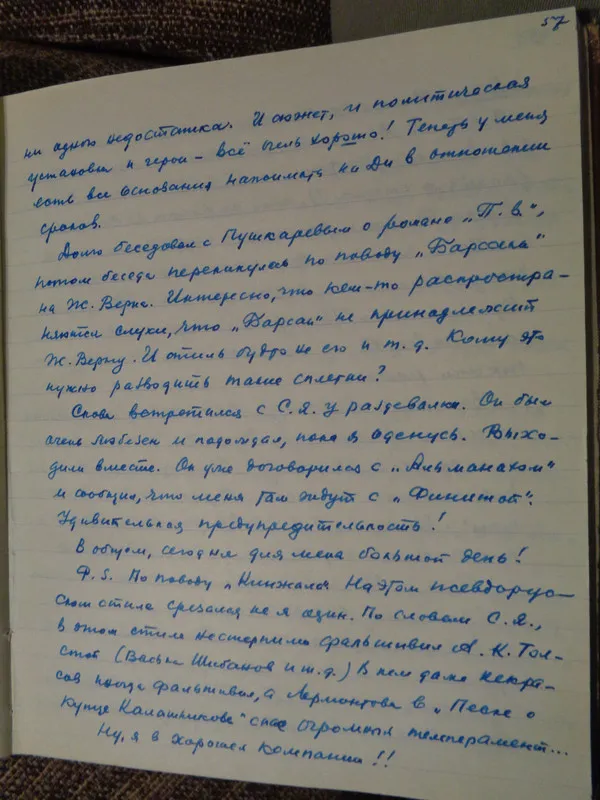 57
ни одного недостатка. И сюжет, и политическая
установка и герои – всё очень хорошо! Теперь у меня
есть все основания нажимать на Ди в отношении
сроков.
Долго беседовал с Пушкаревым о романе „П. в.",
потом беседа перекинулась по поводу „Барсака"
на Ж. Верна. Интересно, что кем-то распростра-
няются слухи, что „Барсак" не принадлежит
Ж. Верну. И стиль будто не его и т. д. Кому это
нужно разводить такие сплетни?
Снова встретился с С.Я. у раздевалки. Он был
очень любезен и подождал, пока я оденусь. Выхо-
дили вместе. Он уже договорился с „Альманахом"
и сообщил, что меня там ждут с „Финистой".
Удивительная предупредительность!
В общем, сегодня для меня большой день!
P.S. По поводу „Кинжала" На этом псевдорус-
ском стиле срезался не я один. По словам С.Я.,
в этом стиле нестерпимо фальшивил А. К. Тол-
стой (Васька Шибанов и т. д.) В нем даже Некра-
сов иногда фальшивил, а Лермонтова в „Песне о
купце Калашникове" спас огромный темперамент...
Ну, я в хорошей компании!!